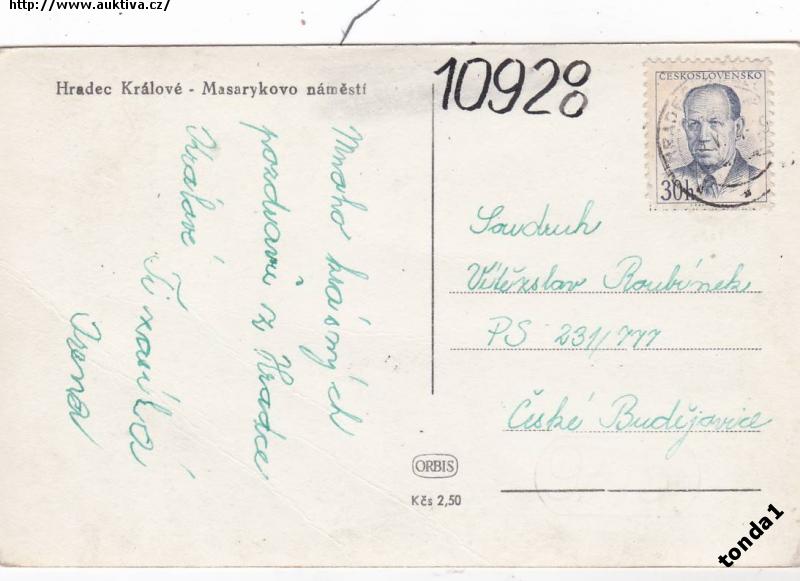 http://www.auktiva.cz/
Hradec Králové - Masarykovo náměstí
10928
ČESKOSLOVENSKO
30h
HRADEC
Mnoho krásných
pozdravů z Hradce
Králové
Ti zasílá
Irena
Soudruh
Vítězslav Roubínek
PS 231/777
České Budějovice
ORBIS
Kčs 2,50
tonda1